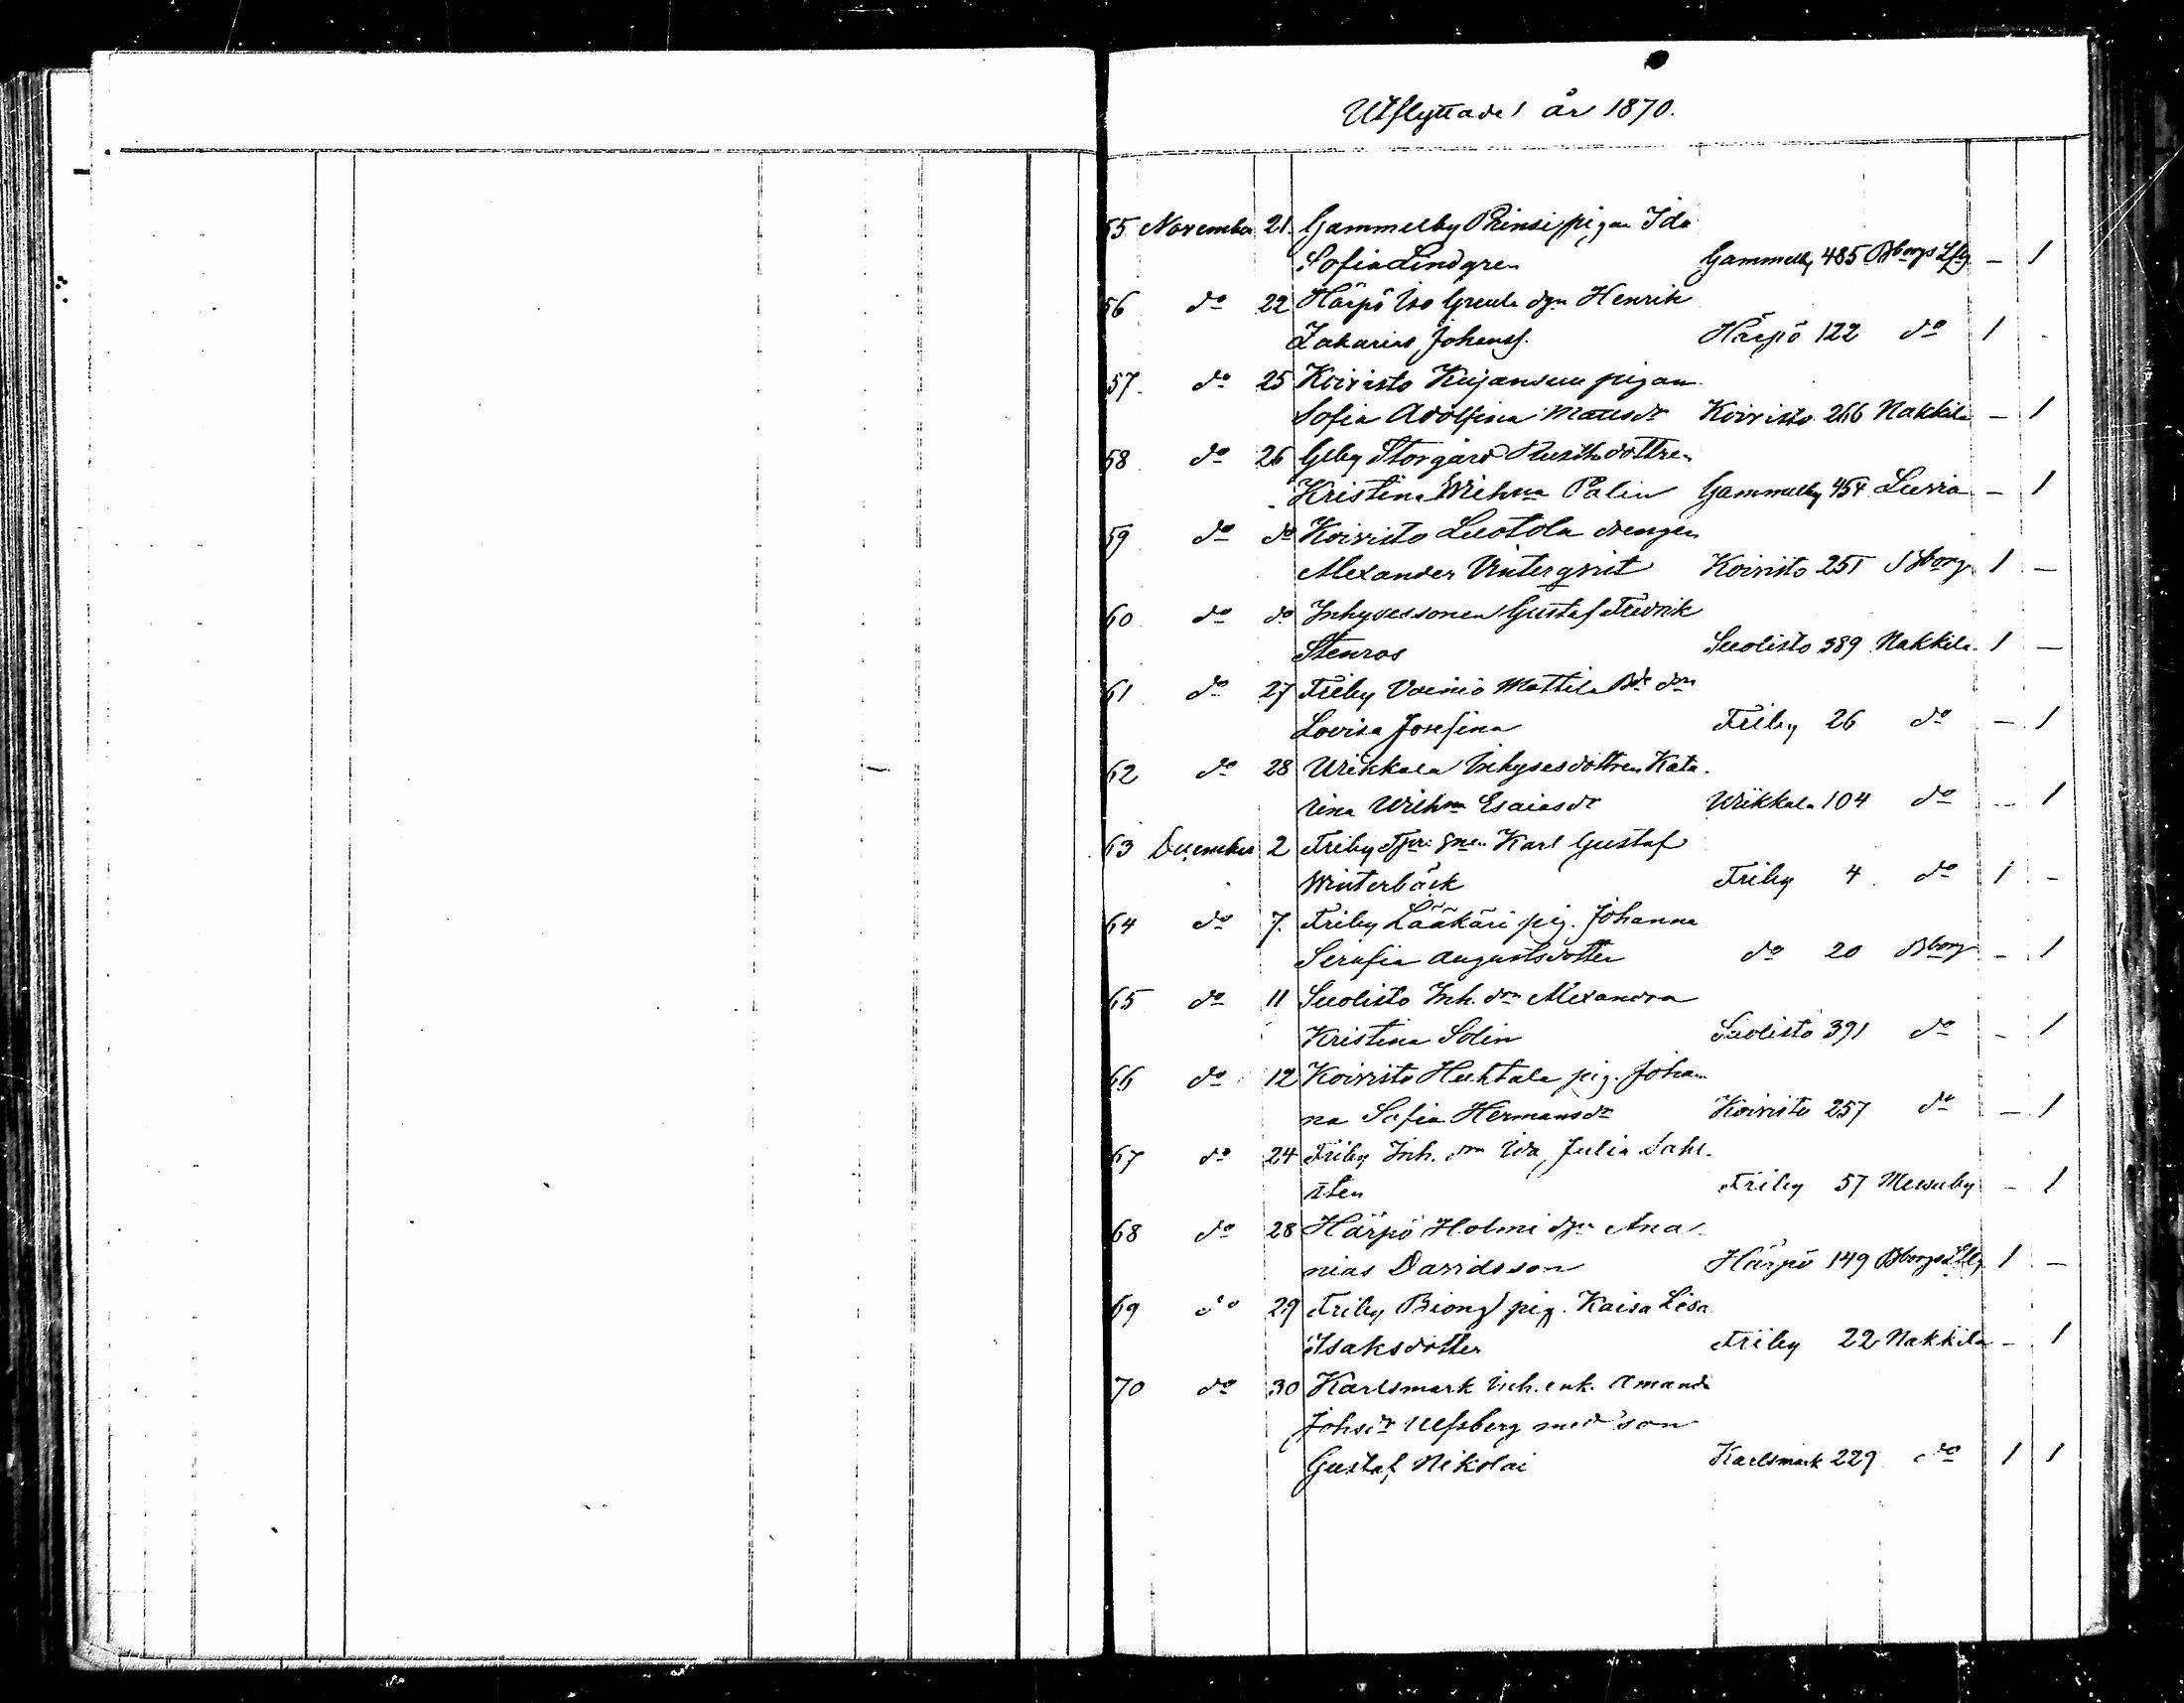 Utflyttade år 1870.
55 November 21. Gammelby Prinsi pigan Ida
Sofia Lindgren Gammelby 485 Bborgs Lfg – 1
56 do 22 Härpö Iso Greula dgn Henrik
Zakarias Johanss. Härpö 122 do 1 -
57. do 25 Koivisto Kujansuu pigan
Sofia Adolfina Mattsdr Koivisto 266 Nakkila – 1
58 do 26 Glby Storgård dottren
Kristina Wilhna Palin Gammelby 454 Luvia – 1
59 do do Koivisto Luotola drengen
Alexander Vinterqvist Koivisto 251 Bborg 1 –
60 do do Inhysessonen Gustaf Fredrik
Stenros Suolisto 389 Nakkila 1 –
61 do 27 Friby Vainio Mattila Bde don
Lovisa Josefina Friby 26 do – 1
62 do 28 Ulikkala Inhysesdottren Kata-
rina Wilhna Esaiasdr Ulikkala 104 do – 1
63 December 2 Friby Karl Gustaf
Winterbäck Friby 4 do 1 -
64 do 7. Friby Lääkäri pig. Johanna
Serafia Augustsdotter do 20 Bborg – 1
65 do 11 Suolisto Inh. don Alexandra
Kristina Solin Suolisto 391 do – 1
66 do 12 Koivisto Huhtala pig. Johan
na Sofia Hermansdr Koivisto 257 do – 1
67 do 24 Friby Inh. don Ida Julia Sahl-
sten Friby 57 – 1
68 do 28 Härpö Holmi dgn Ana-
nias Davidsson Härpö 149 Bborgs Lfg 1 –
69 do 29 Friby Biong pig. Kaisa Lisa
Isaksdotter Friby 22 Nakkila – 1
70 do 30 Karlsmark Inh. enk. Amanda
Johsdr Ulfsberg med son
Gustaf Nikolai Karlsmark 229 do 1 1